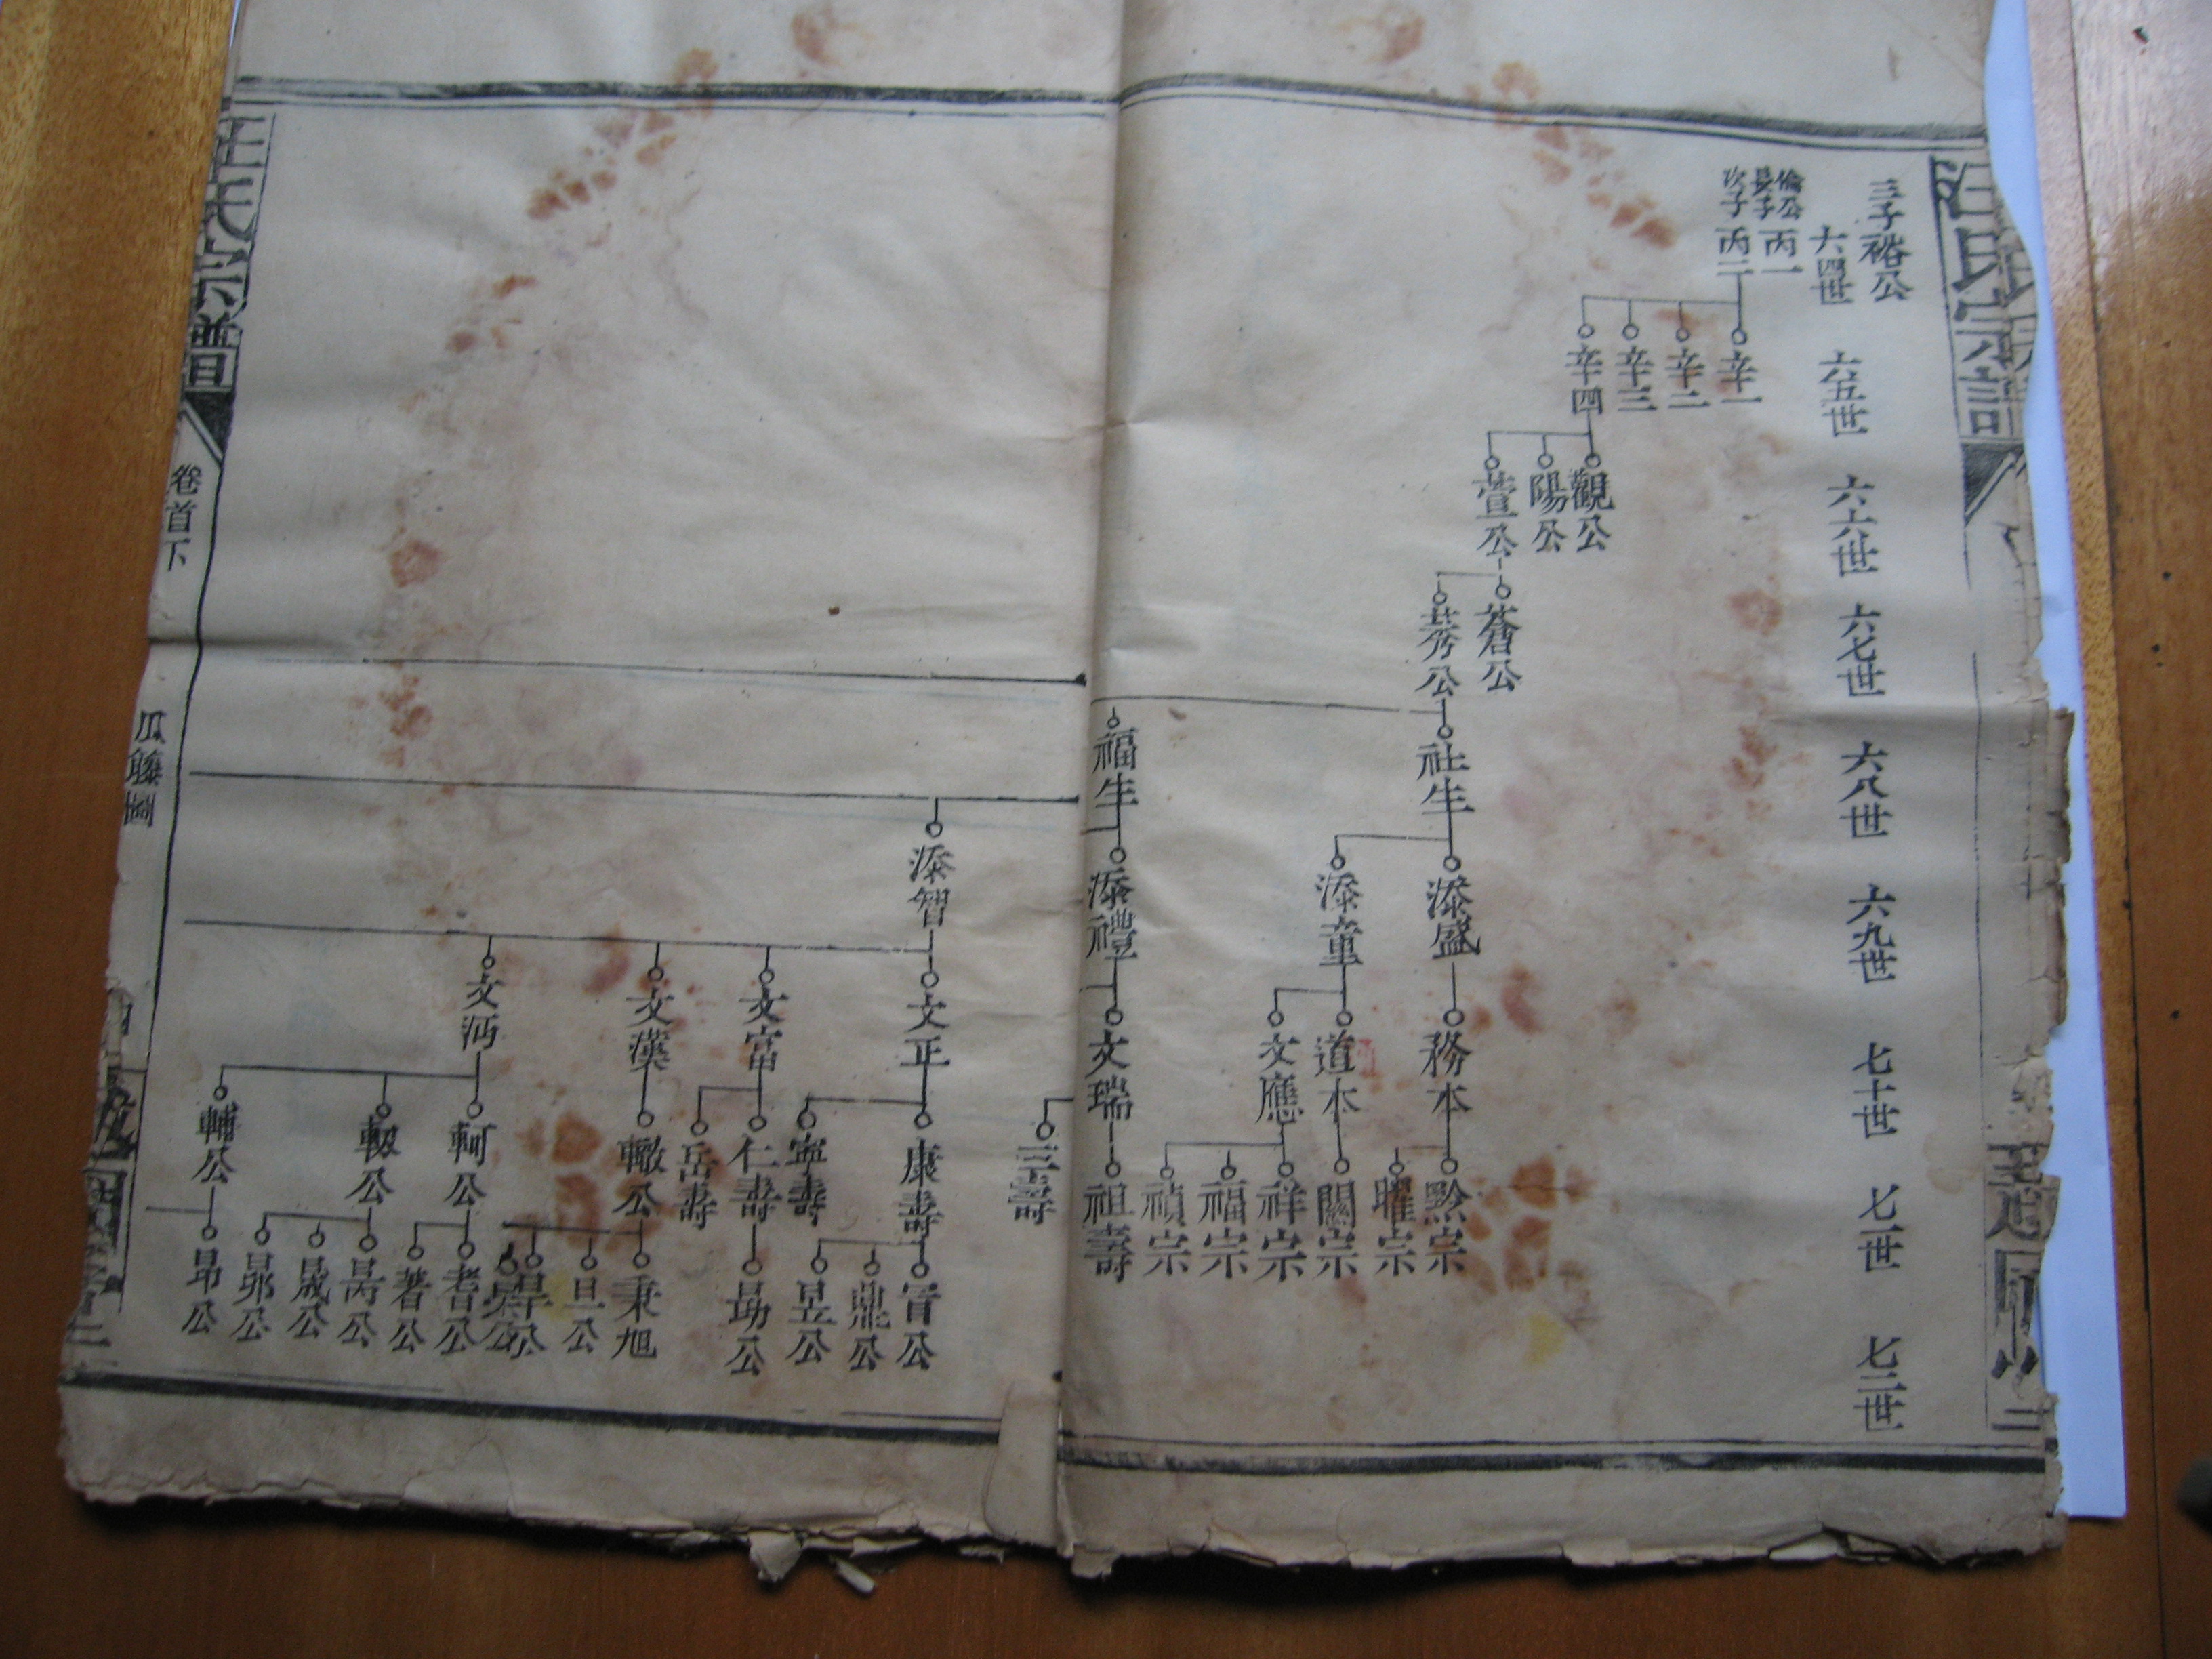 汪氏宗譜
三子裕公
六四世
六五世
六六世
六七世
六八世
六九世
七十世
七一世
七二世
倫公
長子 丙一
次子 丙二
辛一
辛二
辛三
辛四
觀公
陽公
萱公
蒼公
社生
福生
添盛
添童
添禮
務本
道本
文應
文瑞
黔宗
曜宗
闗宗
祥宗
福宗
禎宗
祖壽
三壽
添智
文正
文富
文漢
文沔
康壽
寧壽
仁壽
岳壽
轍公
軻公
輔公
冒公
鼎公
昱公
勗公
秉旭
旦公
公
耆公
著公
昺公
晟公
公
昂公
汪氏宗譜
卷首下
瓜籐圖